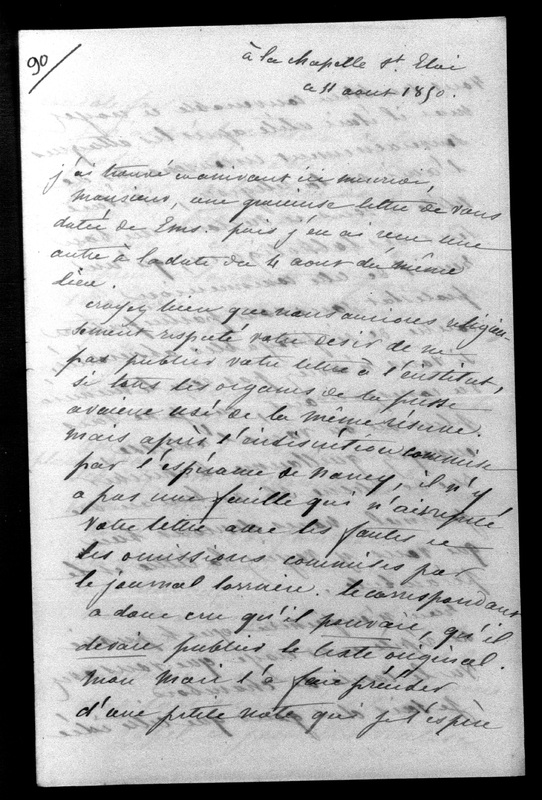 90/
à la chapelle St. Eloi
a 11 aout 1850.
j'ai trouvé en arrivant ici
monsieur, une gracieuse lettre de vous
datée de Ems. puis j'en ai recu une
autre à la date du 4 aout du même
lieu.
croyez bien que nous aurions religieu-
sement respecté votre désir de ne
pas publier votre lettre à l'institut,
si tous les organes de la presse
avaient usé de la même réserve.
mais après l'indiscrétion commise
par l'espérance de nancy, il n'y
a pas une feuille qui n'ait
votre lettre avec les fautes et
les omissions commises par
le journal lorrain. le correspondant
a donc cru qu'il pouvait, qu'il
devait publier le texte original.
mon mari l'a fait précéder
d'une petite note qui je l'espère